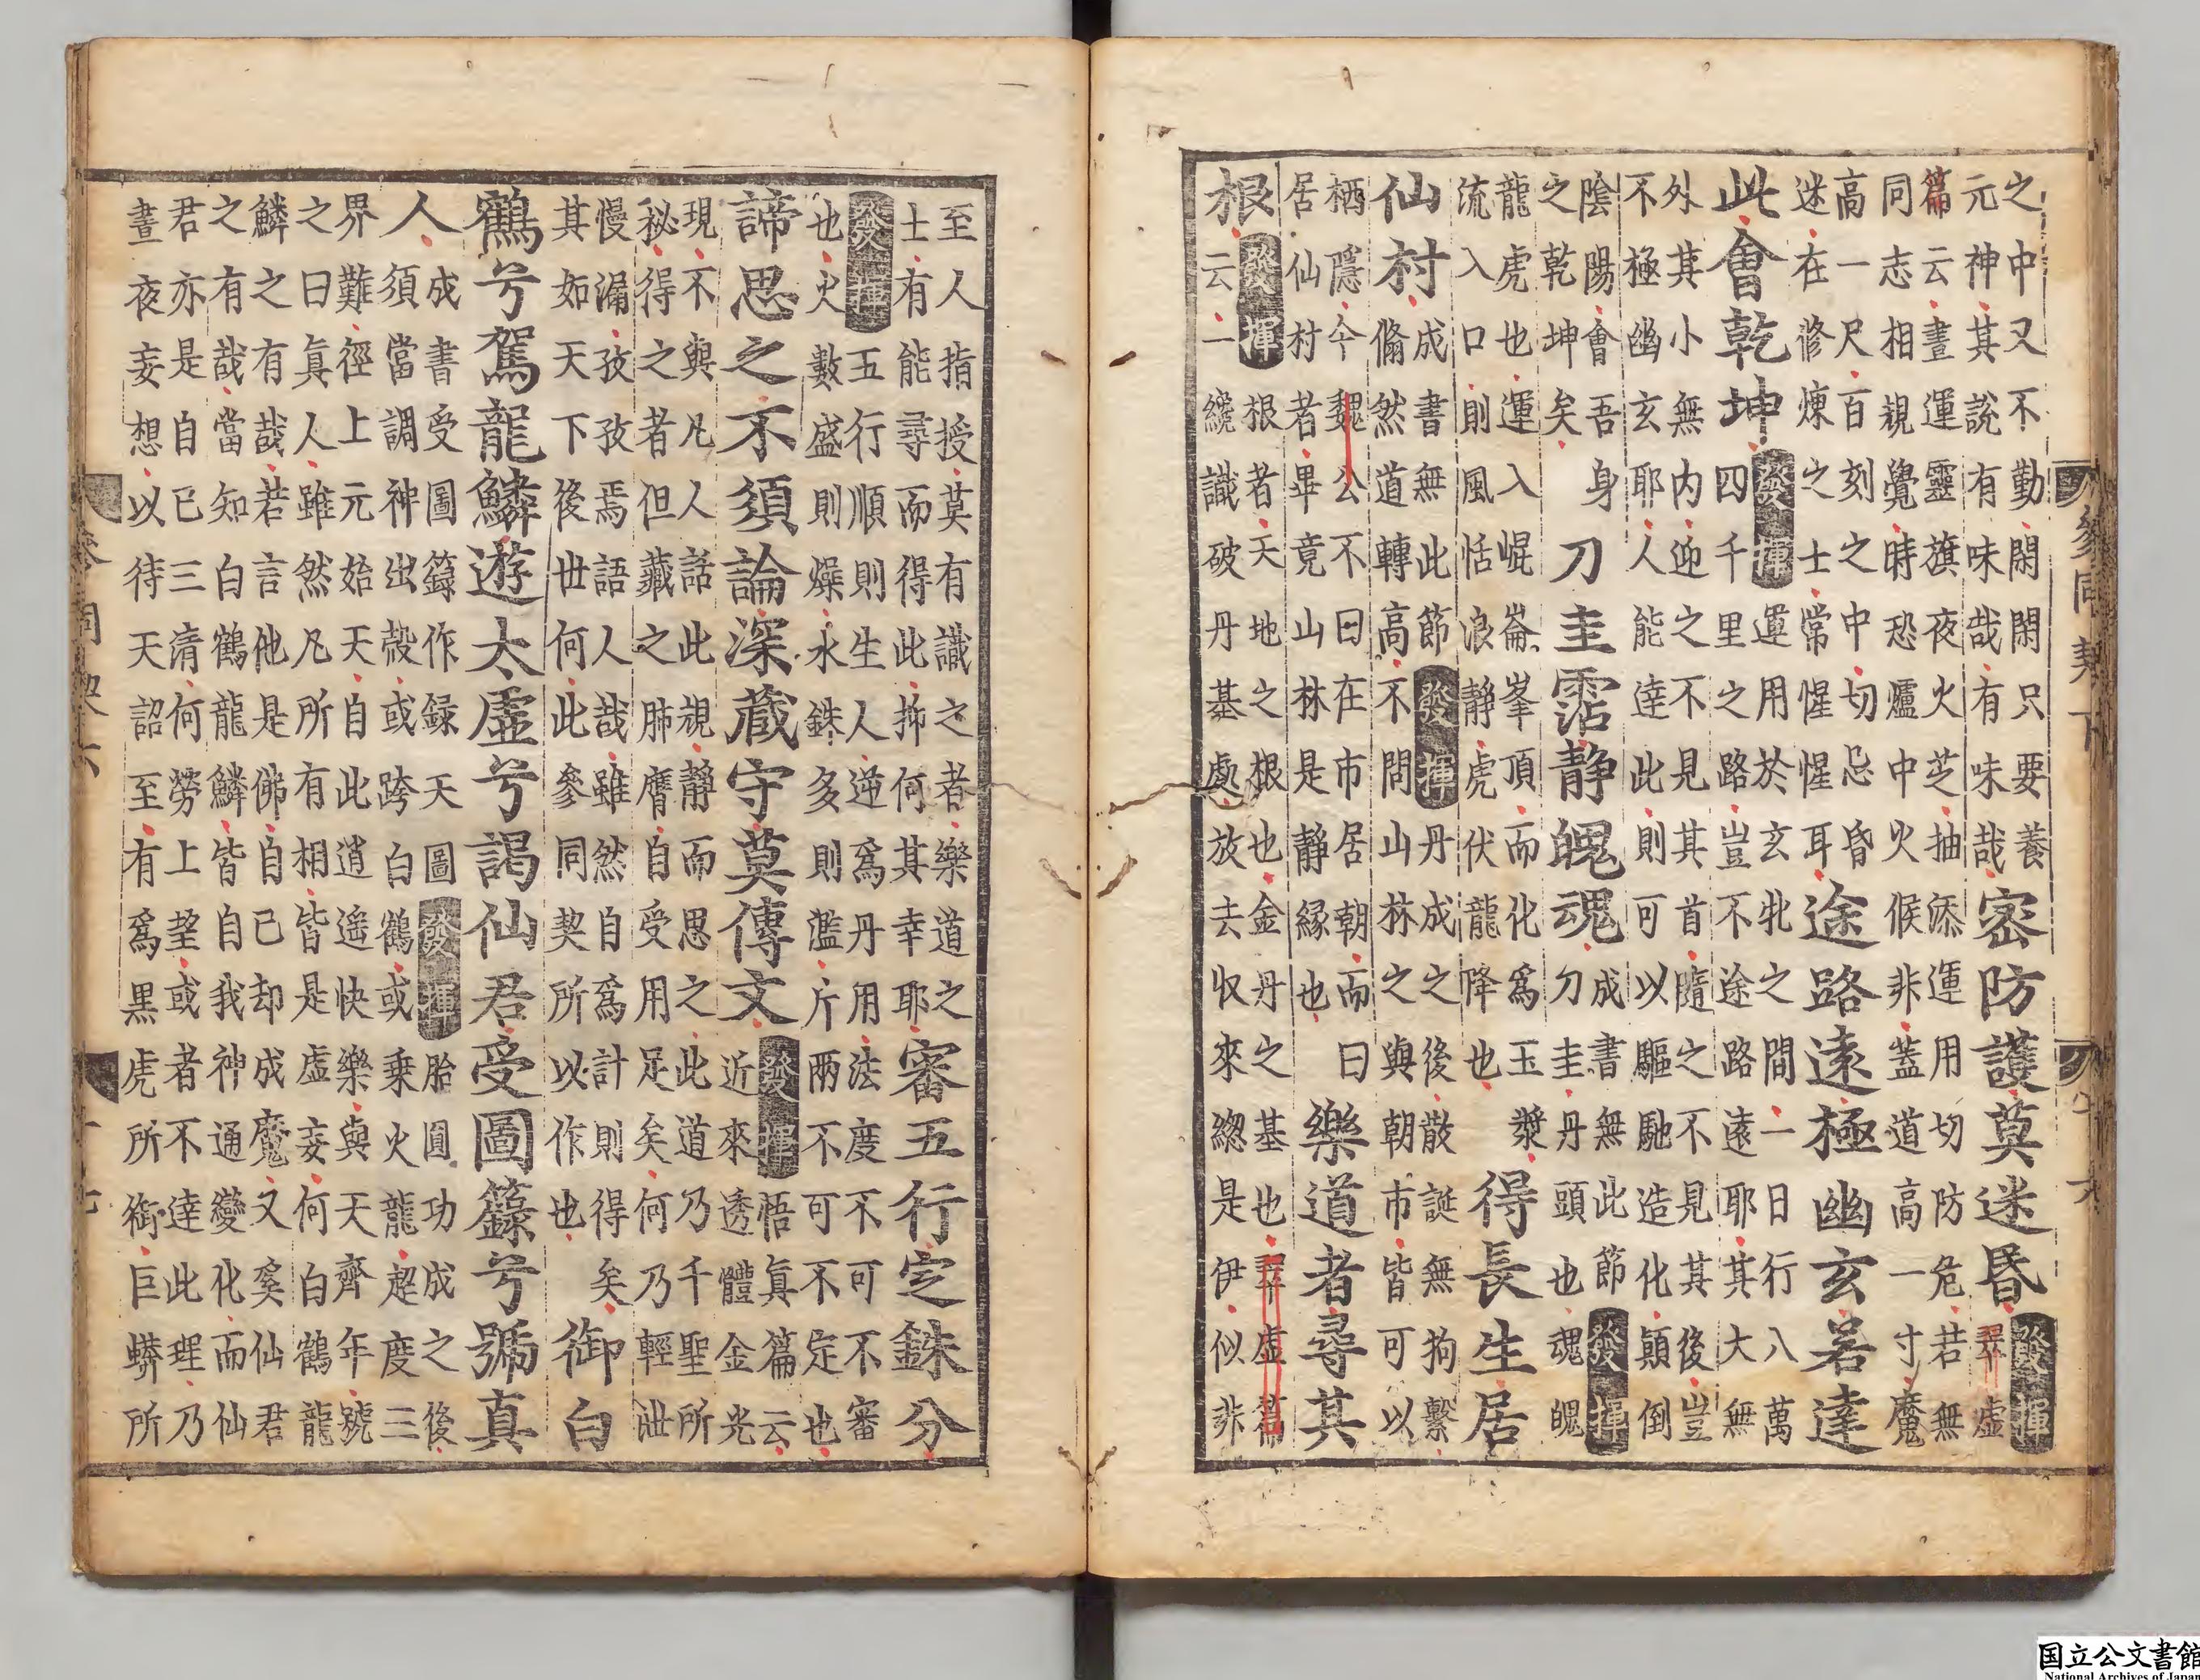 之中又不勤閑閑只要養
元神其說有味哉有味哉
密防護莫迷昏
發揮
翠虛
篇云晝運靈旗夜火芝抽添運用切防危若無
同志相親覺時恐爐中火候非葢道高一寸魔
高一尺百刻之中切忌昏
迷在修煉之士常惺惺耳
途路遠極幽玄若達
此會乾坤
發揮
運用於玄牝之間一日行八萬
四千里之路豈不途路遠耶其大無
外其小無內迎之不見其首隨之不見其後豈
不極幽玄耶人能達此則可以驅馳造化顛倒
陰陽會吾身
之乾坤矣
刀圭霑静魄魂
成書無此節
發揮
刀圭丹頭也魂魄
龍虎也運入崐崙峯頂而化為玉漿
流入口則風恬浪静虎伏龍降也
得長生居
仙村
成書無此節
發揮
丹成之後散誕無拘繫
翛然道轉高不問山林之與朝市皆可以
栖隱今魏公不曰在市居朝而曰
居仙村者畢竟山林是静緣也
樂道者尋其
根
發揮
根者天地之根也金丹之基也翠虛篇
云一纔識破丹基處放去收來總是伊似非
參同契下
十六
至人指授莫有識之者樂道之
士有能尋而得此抑何其幸耶
審五行定銖分
發揮
五行順則生人逆爲丹用法度不可不審
也火數盛則燥水銖多則濫斤兩不可不定也
諦思之不須論深藏守莫傳文
發揮
悟真篇云
近來透體金光
現不與凡人話此規静而思之此道乃千聖所
秘得之者但藏之肺膺自受用足矣何乃輕泄
慢漏孜孜焉語人哉雖然自爲計則得矣
其如天下後世何此參同契所以作也
御白
鶴兮駕龍鱗遊太虛兮謁仙君受圖籙兮號真
人
成書受圖籙作録天圖
發揮
胎圓功成之後
須當調神出殼或跨白鶴或乘火龍超度三
界難徑上元始天自此逍遥快樂與天齊年號
之曰真人雖然凡所有相皆是虛妄何白鶴龍
鱗之有哉若言他是佛自己却成魔又奚仙君
之有哉當知白鶴龍鱗皆自我神通變化而仙
君亦是自己三清何勞上望或者不達此理乃
晝夜妄想以待天詔至有爲黒虎所銜巨蟒所
国立公文書館
National Archives of Japan